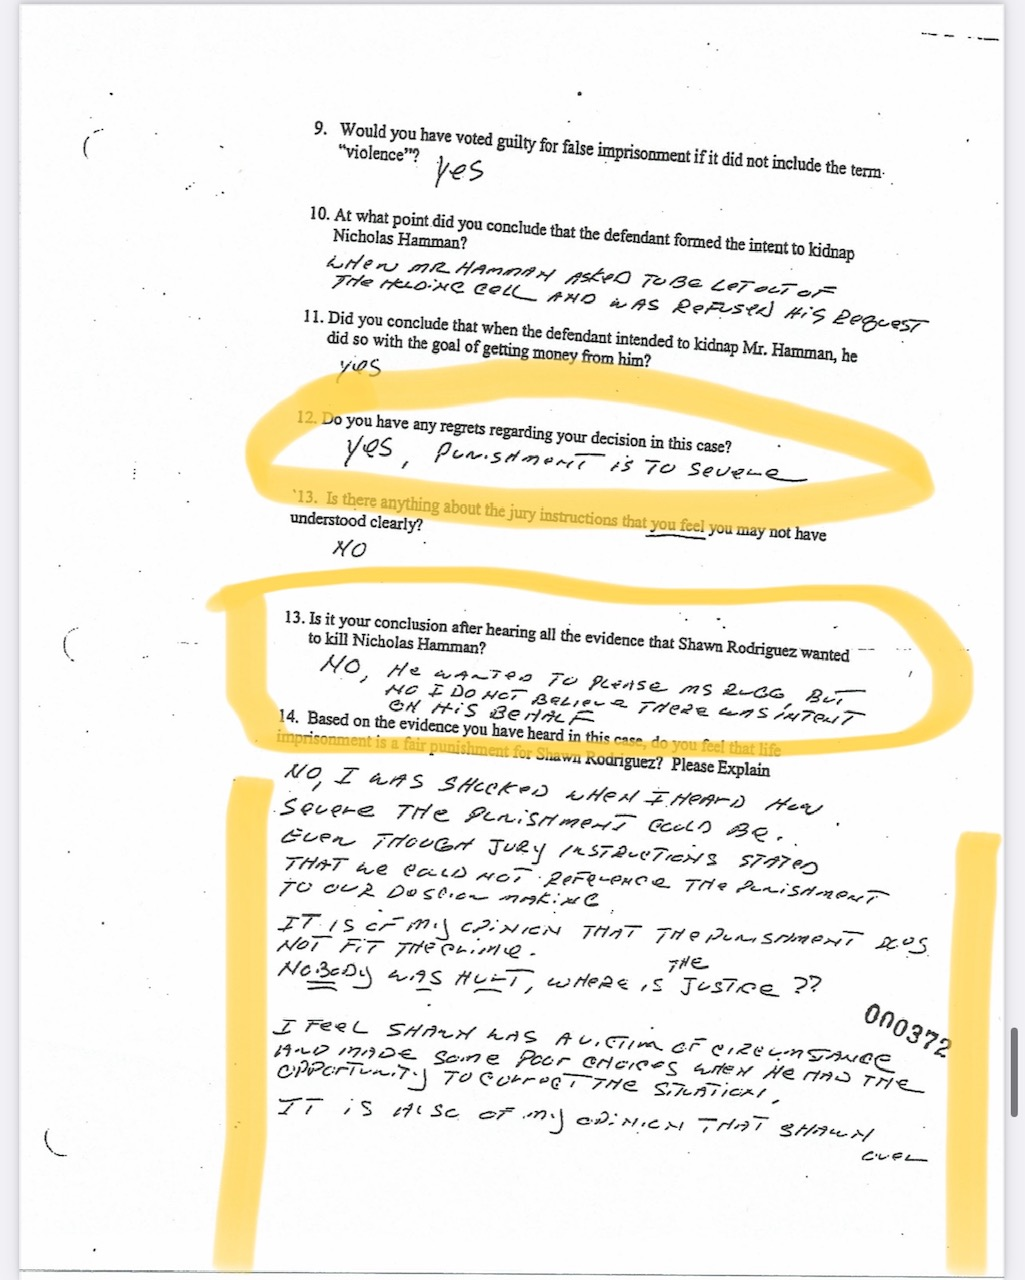 9. Would you have voted guilty for false imprisonment if it did not include the term
"violence"? yes
10. At what point did you conclude that the defendant formed the intent to kidnap
Nicholas Hamman?
WHEN MR HAMMAN ASKED TO BE LET OUT OF
THE HOLDING CELL AND WAS REFUSED HIS REQUEST
11. Did you conclude that when the defendant intended to kidnap Mr. Hamman, he
did so with the goal of getting money from him?
yes
12. Do you have any regrets regarding your decision in this case?
YES, PUNISHMENT IS TO SEVERE
13. Is there anything about the jury instructions that you feel you may not have
understood clearly?
NO
13. Is it your conclusion after hearing all the evidence that Shawn Rodriguez wanted
to kill Nicholas Hamman?
NO, HE WANTED TO PLEASE MS RUGG, BUT
NO I DO NOT BELIEVE THERE WAS INTENT
ON HIS BEHALF
14. Based on the evidence you have heard in this case, do you feel that life
imprisonment is a fair punishment for Shawn Rodriguez? Please Explain
NO, I WAS SHOCKED WHEN I HEARD HOW
SEVERE THE PUNISHMENT COULD BE.
EVEN THOUGH JURY INSTRUCTIONS STATED
THAT WE COULD NOT REFERENCE THE PUNISHMENT
TO OUR DESCION MAKING
IT IS OF MY OPINION THAT THE PUNISHMENT DOES
NOT FIT THE CRIME.
NOBODY WAS HURT, WHERE IS THE JUSTICE ??
000372
I FEEL SHAWN WAS A VICTIM OF CIRCUMSTANCE
AND MADE SOME POOR CHOICES WHEN HE HAD THE
OPPORTUNITY TO CORRECT THE SITUATION.
IT IS ALSO OF MY OPINION THAT SHAWN
OVER